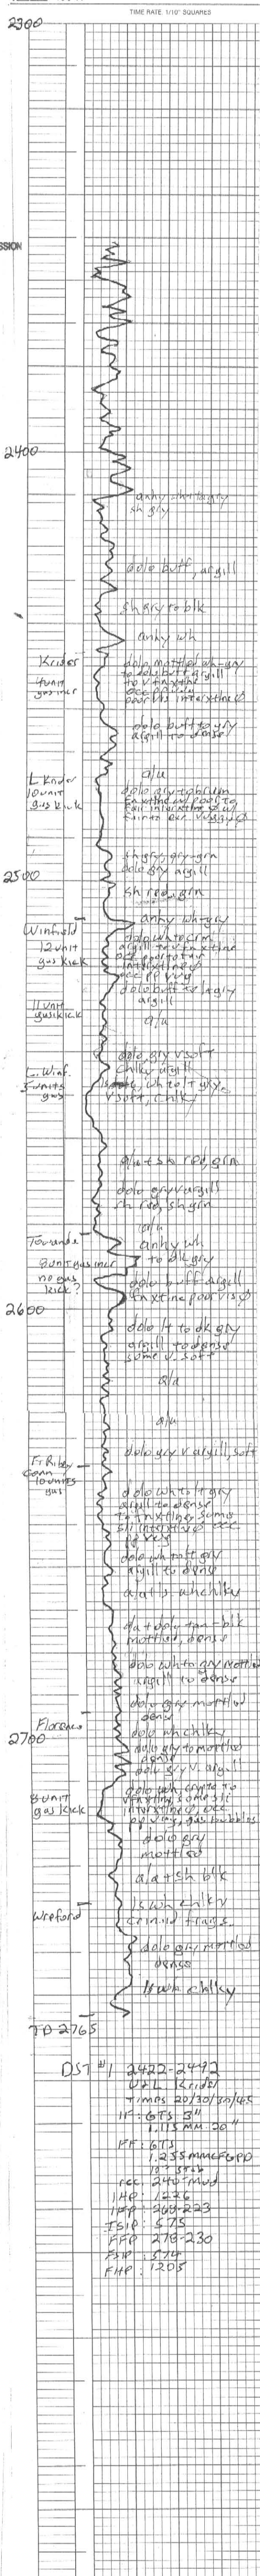 TIME RATE. 1/10" SQUARES
2300
SSION
2400
anhy wh to gry
sh gry
dolo buff, argill
sh gry to blk
anhy wh
Krider
4 unit
gas incr
dolo mottled wh-gry
to dolo buff argill
to v fnxtlne
occ pp vug
poor vis interxtlne ϕ
dolo buff to gry
argill to dense
a/a
L Krider
10 unit
gas kick
dolo gry to brwn
fnxtlne w/ poor to
fair interxtlne ϕ w/
vuggy ϕ
sh gry, gry-grn
dolo gry argill
2500
sh red, grn
anhy wh-gry
Winfield
12 unit
gas kick
dolo wh to crm
argill to v fnxtlne
occ poor to fair
interxtlne ϕ
occ pp vug
dolo buff to lt gry
argill
11 unit
gas kick
a/a
dolo, gry v soft
chlky argill
L. Winf.
5 units
gas
wh to lt gry,
v soft, chlky
a/a + sh red, grn
dolo gry v argill
sh red, sh grn
a/a
Towanda
anhy wh
to dk gry
8 unit gas incr
no gas
kick?
dolo buff-argill
fnxtlne poor vis ϕ
2600
dolo lt to dk gry
argill to dense
some v. soft
a/a
a/a
dolo gry v argill, soft
Ft Riley
Conn
10 units
gas
dolo wh to lt gry
argill to dense
to fnxtlne, some
sli interxtl ϕ occ
pp vug
dolo wh to lt gry
argill to dense
a/a ls wh chlky
a/a + dolo tan-blk
mottled, dense
dolo wh to gry mottled
argill to dense
dolo gry mottled
dense
Florence
dolo wh chlky
2700
dolo gry to mottled
dense
dolo gry v. argill
8 unit
gas kick
dolo wh, crypto to
vfnxtlne, some sli
interxtlne ϕ, occ
pp vug, gas bubbles
dolo gry
mottled
a/a + sh blk
Wreford
ls wh chlky
crinoid frags
dolo gry mottled
dense
ls wh chlky
TD-2765
DST #1 2422-2492
U + L Krider
Times 20/30/30/45
IF: GTS 3"
1.115 MM 20"
FF: GTS
1.255 MMCFGPD
10" stab
rec: 240' mud
IHP: 1226
IFP: 268-223
ISIP: 575
FFP 278-230
FSIP: 574
FHP: 1205